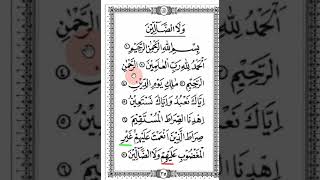 وَلَا الضَّآلِّيْنَ
بِسْمِ اللهِ الرَّحْمٰنِ الرَّحِيْمِ
اَلْحَمْدُ لِلّٰهِ رَبِّ الْعٰلَمِيْنَ ۝ الرَّحْمٰنِ
الرَّحِيْمِ ۝ مٰلِكِ يَوْمِ الدِّيْنِ ۝
اِيَّاكَ نَعْبُدُ وَاِيَّاكَ نَسْتَعِيْنُ ۝
اِهْدِنَا الصِّرَاطَ الْمُسْتَقِيْمَ ۝
صِرَاطَ الَّذِيْنَ اَنْعَمْتَ عَلَيْهِمْ غَيْرِ
الْمَغْضُوْبِ عَلَيْهِمْ وَلَا الضَّآلِّيْنَ ۝